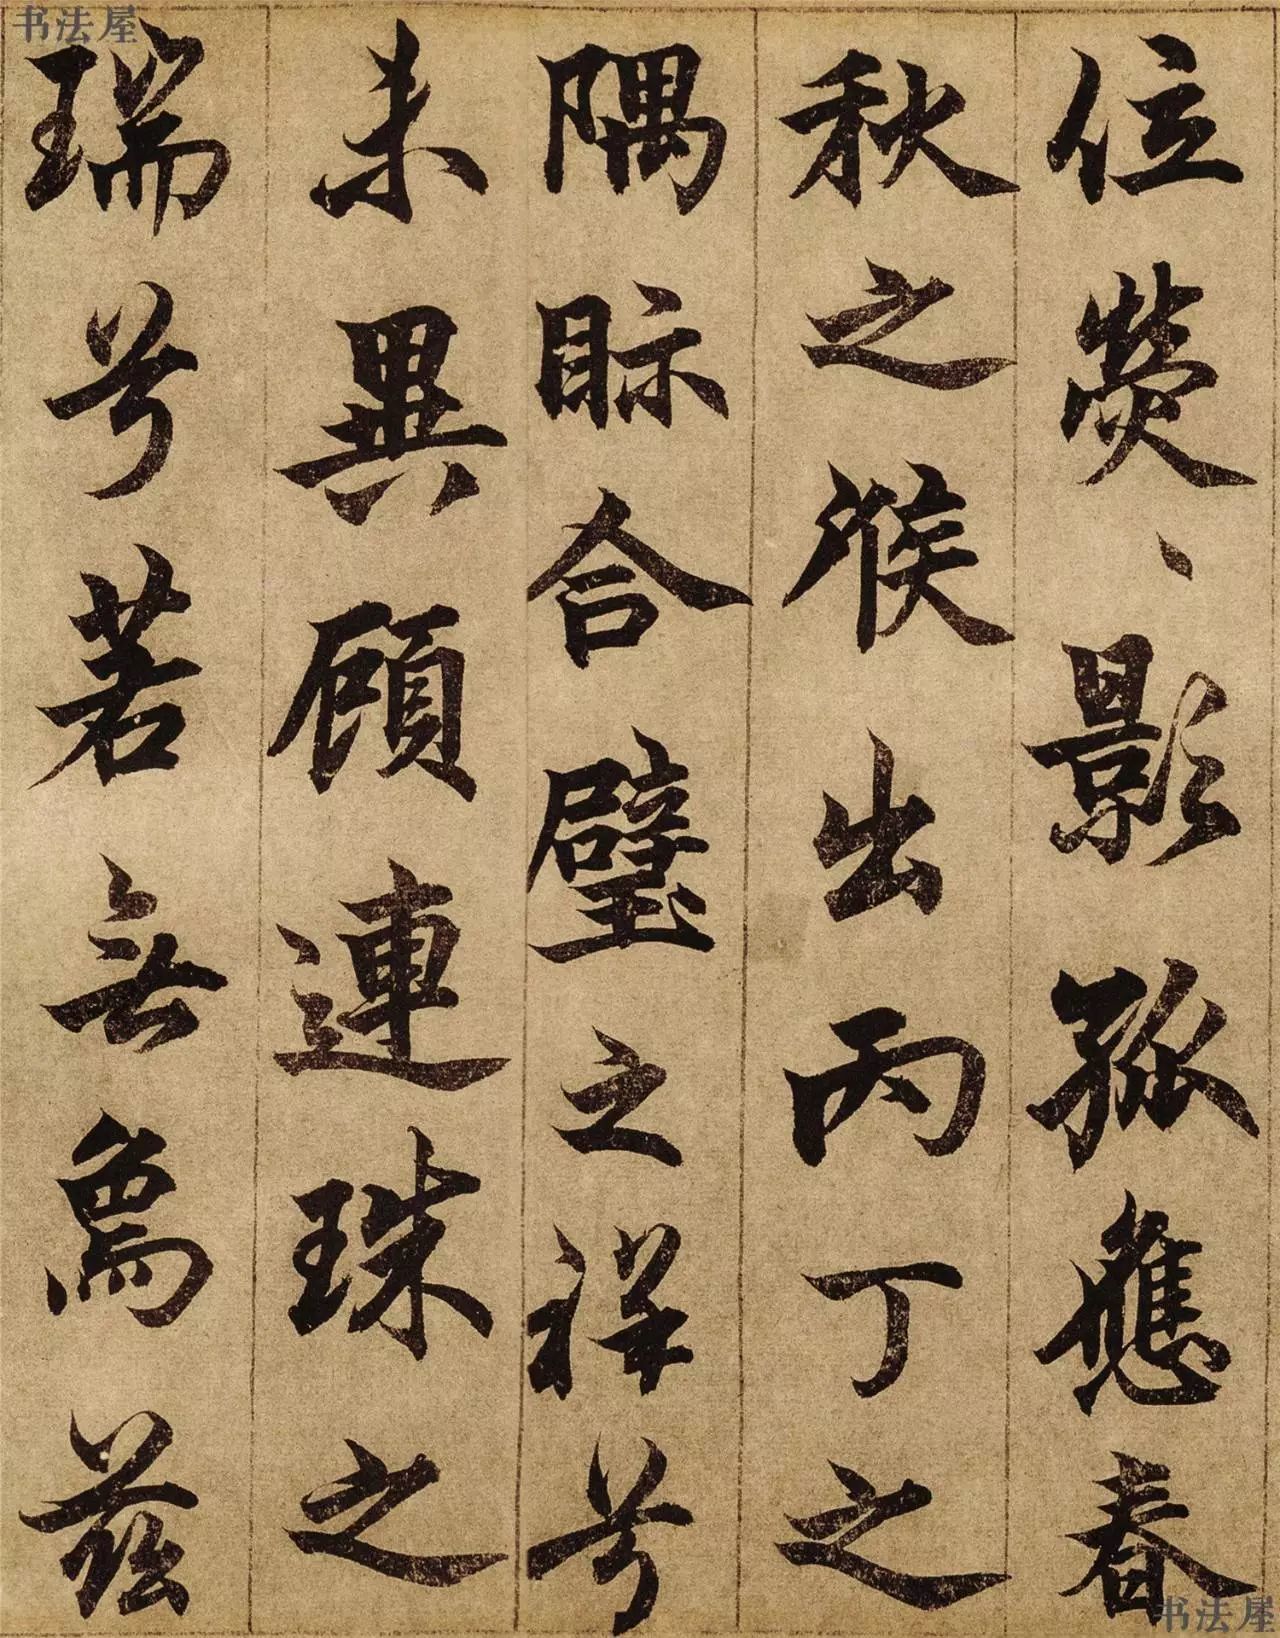 书法屋
位熒、影孤應春
秋之候出丙丁之
隅眎合璧之祥兮
未異顧連珠之
瑞兮若無為茲
书法屋